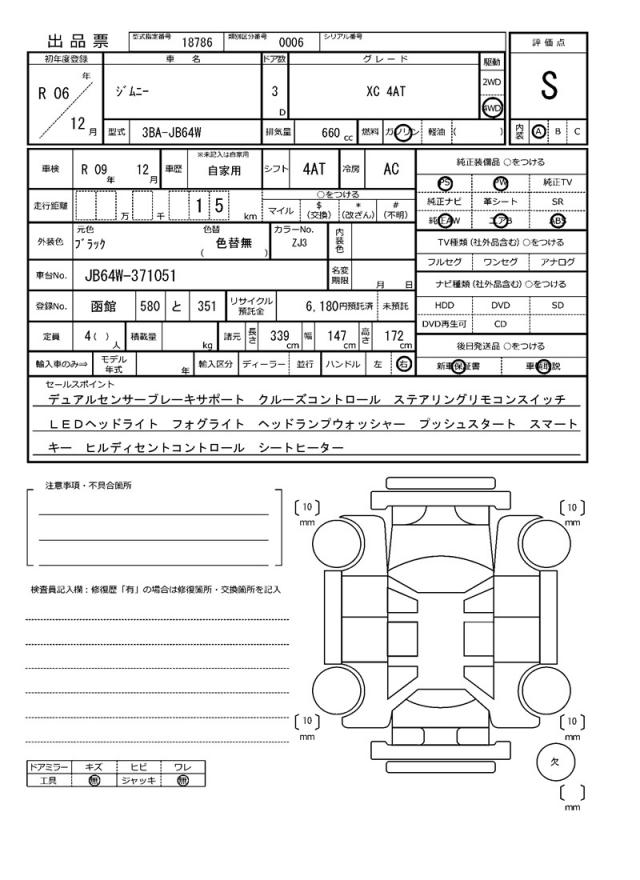 出品票 型式指定番号 18786 類別区分番号 0006 シリアル番号
初年度登録 車名 ドア数 グレード 駆動 評価点
R 06 年 12 月 ジムニー 3 D XC 4AT 2WD 4WD S
型式 3BA-JB64W 排気量 660 cc 燃料 ガソリン 軽油 ( ) 内装 A B C
車検 R 09 年 12 月 車歴 ※未記入は自家用 自家用 シフト 4AT 冷房 AC
走行距離 万 千 1 5 km ○をつける マイル $ (交換) * (改ざん) # (不明)
外装色 元色 ブラック 色替 ( 色替無 ) カラーNo. ZJ3 内装色
車台No. JB64W-371051 名変期限 月 日
登録No. 函館 580 と 351 リサイクル預託金 6,180円預託済 未預託
定員 4( ) 人 積載量 kg 諸元 長さ 339 cm 幅 147 cm 高さ 172 cm
輸入車のみ⇒ モデル年式 年 輸入区分 ディーラー 並行 ハンドル 左 右
純正装備品 ○をつける
PS PW 純正TV
純正ナビ 革シート SR
純正AW エアB ABS
TV種類 (社外品含む) ○をつける
フルセグ ワンセグ アナログ
ナビ種類 (社外品含む) ○をつける
HDD DVD SD
DVD再生可 CD
後日発送品 ○をつける
新車保証書 車輌取説
セールスポイント
デュアルセンサーブレーキサポート クルーズコントロール ステアリングリモコンスイッチ
LEDヘッドライト フォグライト ヘッドランプウォッシャー プッシュスタート スマート
キー ヒルディセントコントロール シートヒーター
注意事項・不具合箇所
検査員記入欄：修復歴「有」の場合は修復箇所・交換箇所を記入
〔 10 〕 mm
〔 10 〕 mm
〔 10 〕 mm
〔 10 〕 mm
欠
〔 〕 mm
ドアミラー キズ ヒビ ワレ
工具 無 ジャッキ 無